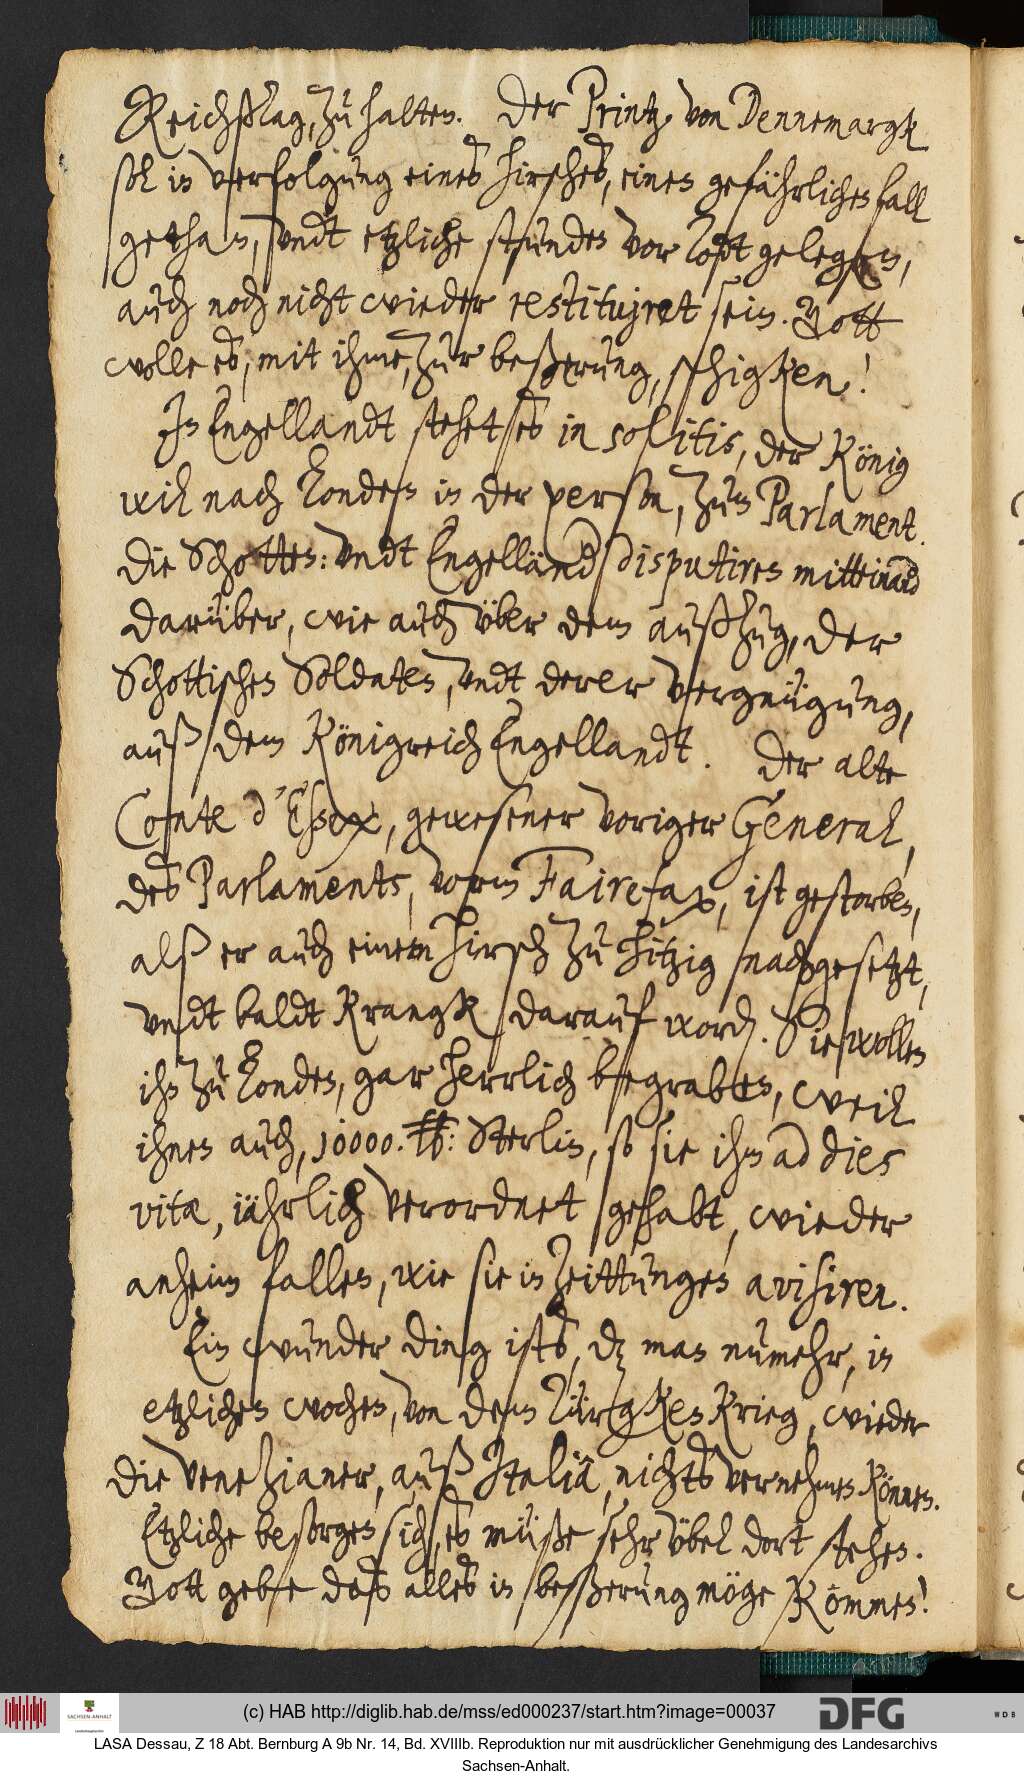 Reichßtag, zu halten. Der Printz von Dennemargk
sol in verfolgung eines hirsches, einen gefährlichen fall
gethan, undt etzliche stunden vor todt gelegen,
auch noch nicht wieder restituiret sein. Gott
wolle es, mit ihme, zur beßerung, schigken!
In Engellandt stehet es in solitis, der König
wil nach Londen in der person, zum Parlament.
Die Schotten: undt Engelländ disputiren miteinand
darüber, wie auch über dem außzug, der
Schottischen Soldaten, undt derer vergnügung,
auß dem Königreich Engellandt. Der alte
Comte d'Essex, gewesener voriger General,
des Parlaments, vorm Fairefax, ist gestorben,
alß er auch einem hirsch zu hitzig nachgesetzt,
undt baldt krangk darauf word. Sie wollen
ihn zu Londen, gar herrlich begraben, weil
ihnen auch, 10000. ℔: Sterlin, so sie ihm ad dies
vitæ, iährlich verordnet gehabt, wieder
anheim fallen, wie sie in Zeittungen avisiren.
Ein wunder ding ists, dz man numehr, in
etzlichen wochen, von dem Türgken Krieg, wieder
die Venezianer, auß Italiâ, nichts vernehmen können.
Etzliche besorgen sich, es müße sehr übel dort stehen.
Gott gebe daß alles in beßerung möge kommen!
(c) HAB http://diglib.hab.de/mss/ed000237/start.htm?image=00037
SACHSEN-ANHALT
DFG
WDB
LASA Dessau, Z 18 Abt. Bernburg A 9b Nr. 14, Bd. XVIIIb. Reproduktion nur mit ausdrücklicher Genehmigung des Landesarchivs
Sachsen-Anhalt.